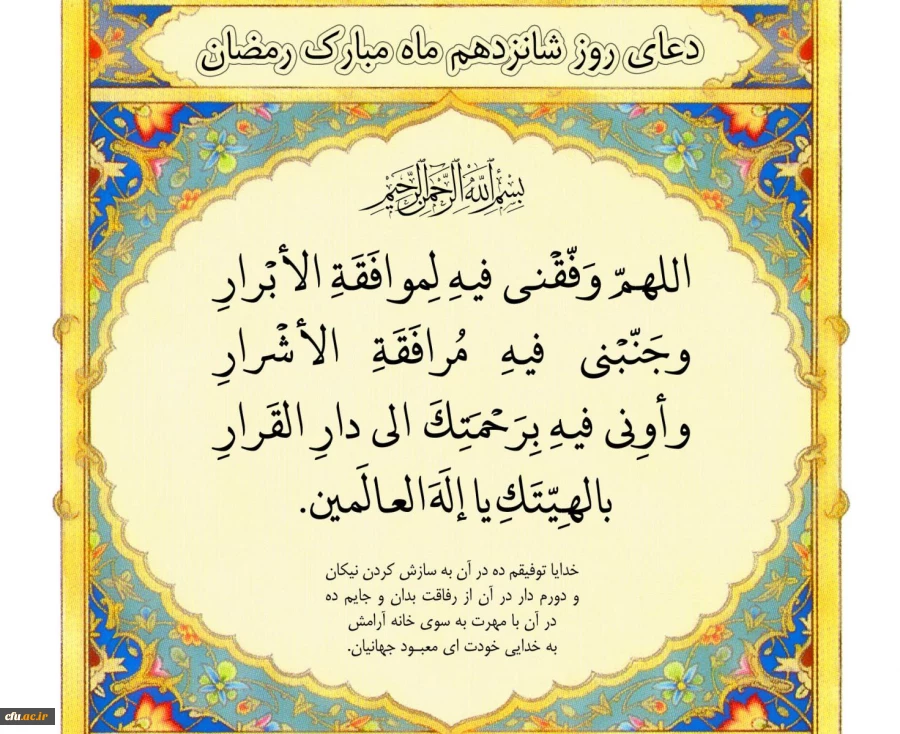 دعای روز شانزدهم ماه مبارک رمضان
بِسْمِ اللَّهِ الرَّحْمَنِ الرَّحِيمِ
اللهمّ وَفّقْنی فیهِ لِموافَقَةِ الأبْرارِ
وجَنّبْنی فیهِ مُرافَقَةِ الأشْرارِ
وأوِنی فیهِ بِرَحْمَتِكَ الی دارِ القَرارِ
بالهِیّتَكِ یا إلَهَ العالَمین.
خدایا توفیقم ده در آن به سازش کردن نیکان
و دورم دار در آن از رفاقت بدان و جایم ده
در آن با مهرت به سوی خانه آرامش
به خدایی خودت ای معبود جهانیان.
cfu.ac.ir